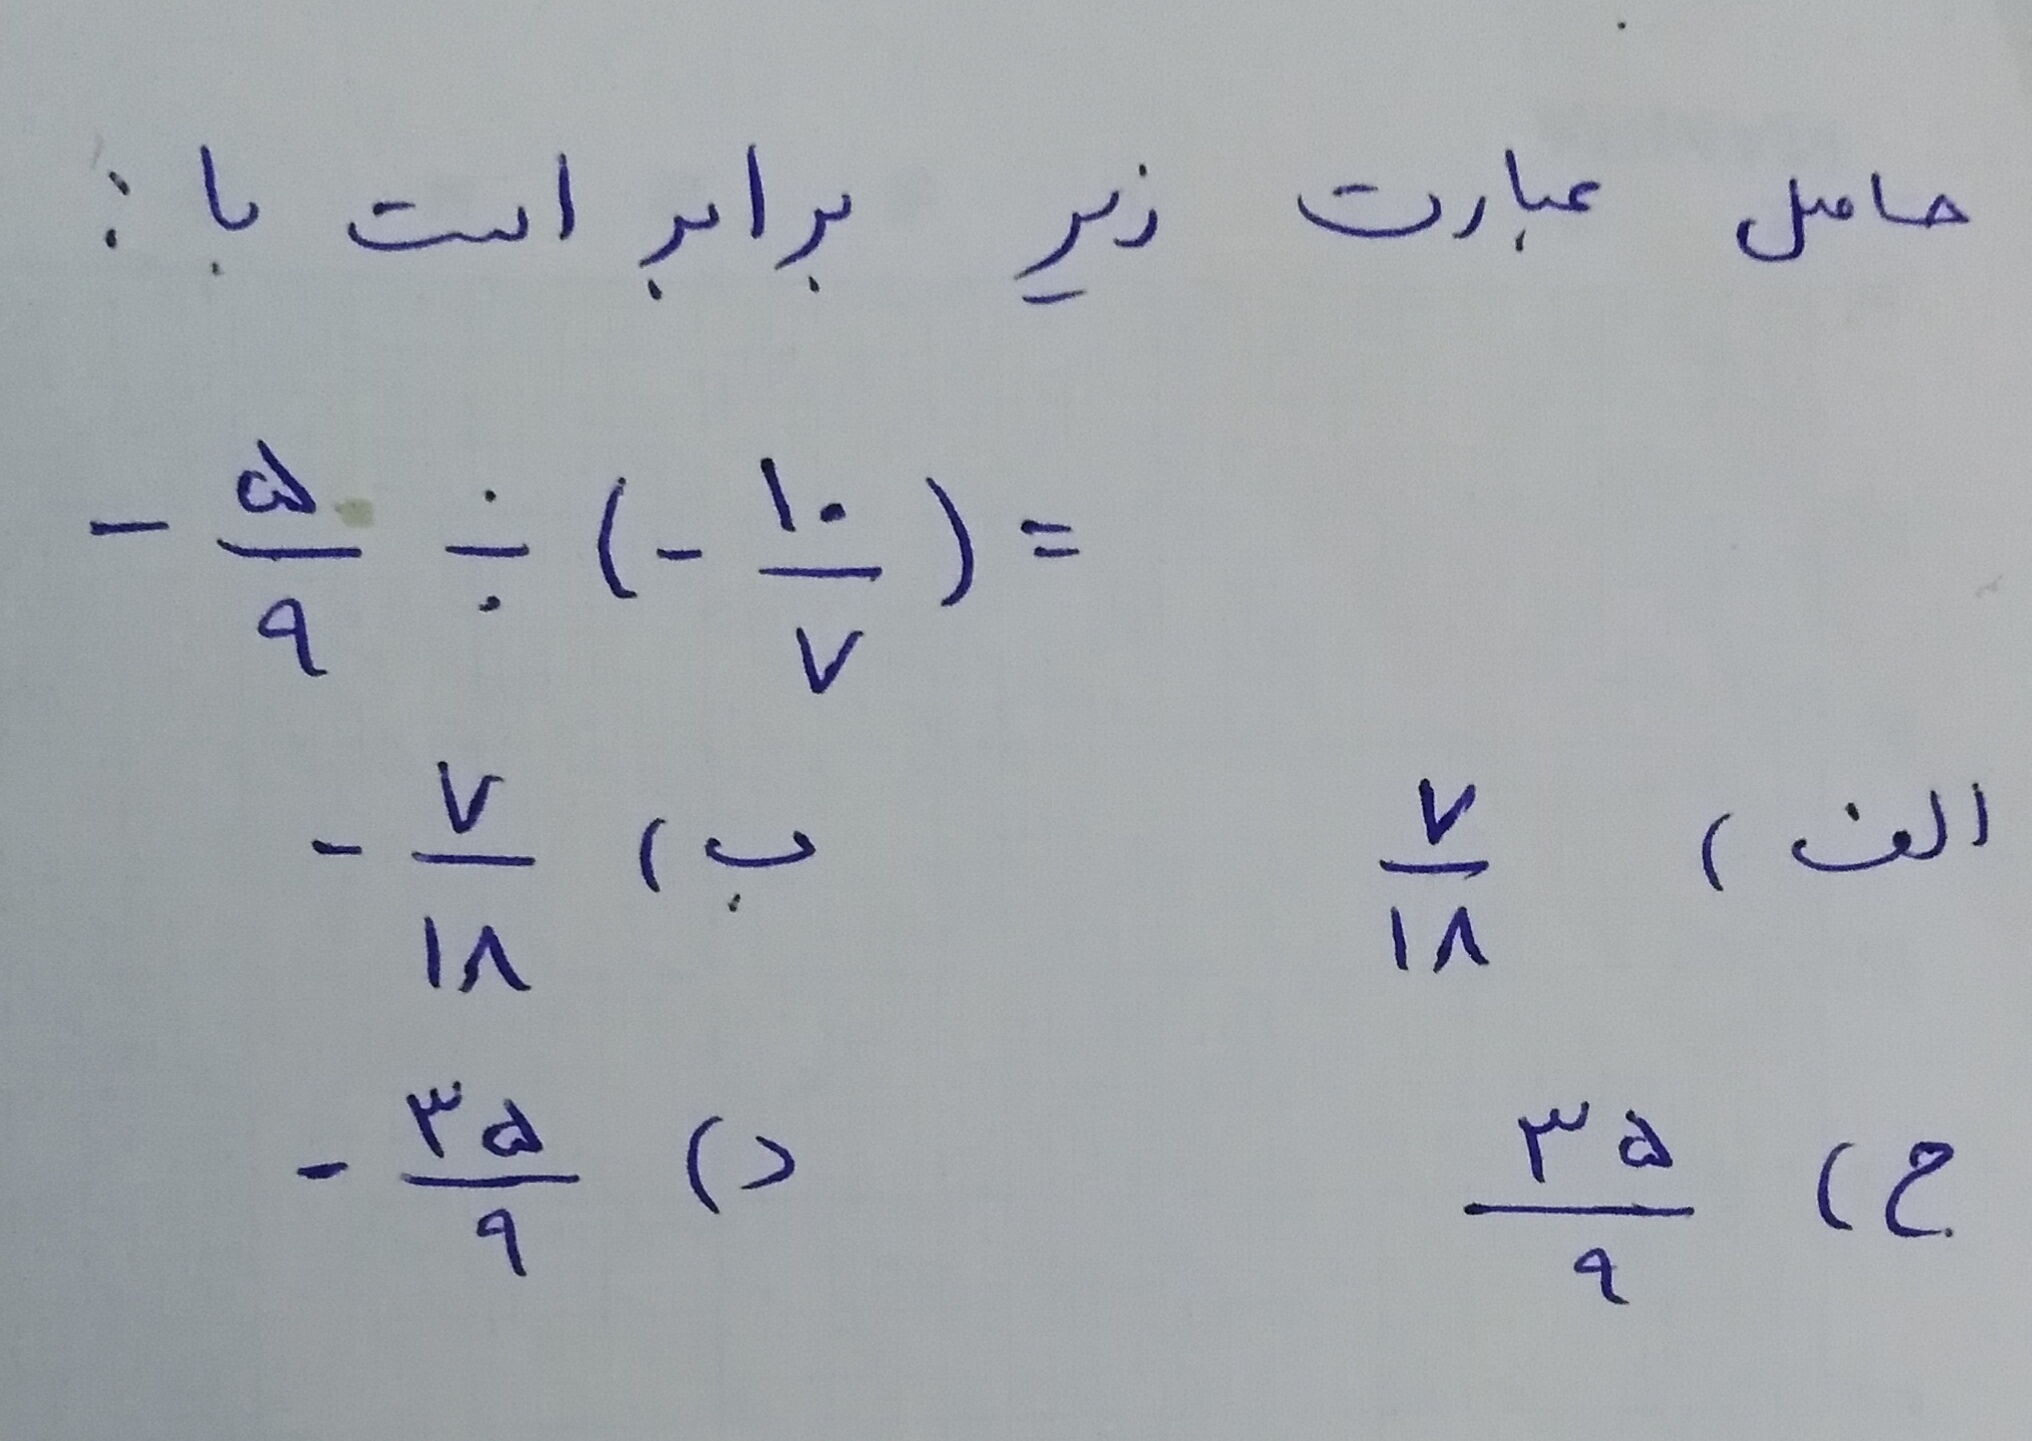 حاصل عبارت زیر برابر است با :
- ۵/۹ ÷ (- ۱۰/۷) =
الف) ۷/۱۸ ب) - ۷/۱۸
ج) ۳۵/۹ د) - ۳۵/۹